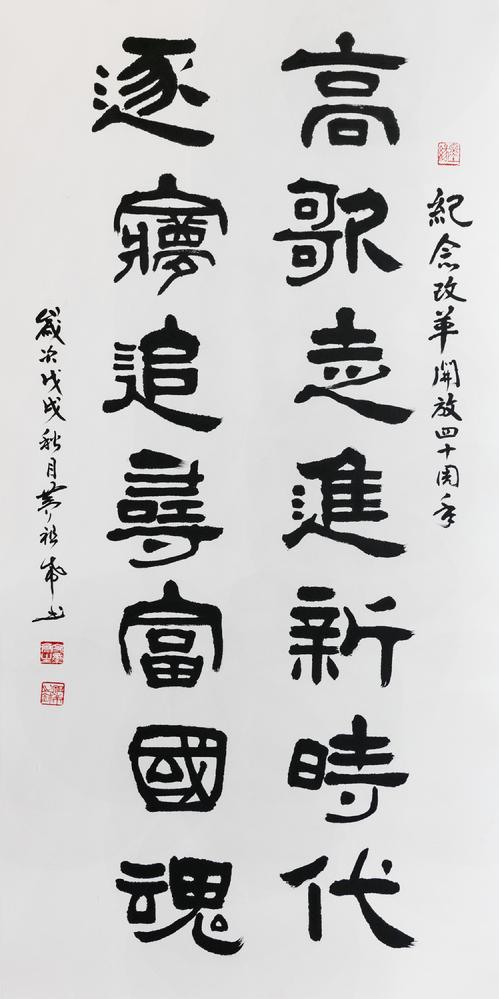 紀念改革開放四十周年
高歌走進新時代
逐夢追尋富國魂
歲次戊戌秋月黃祖武书